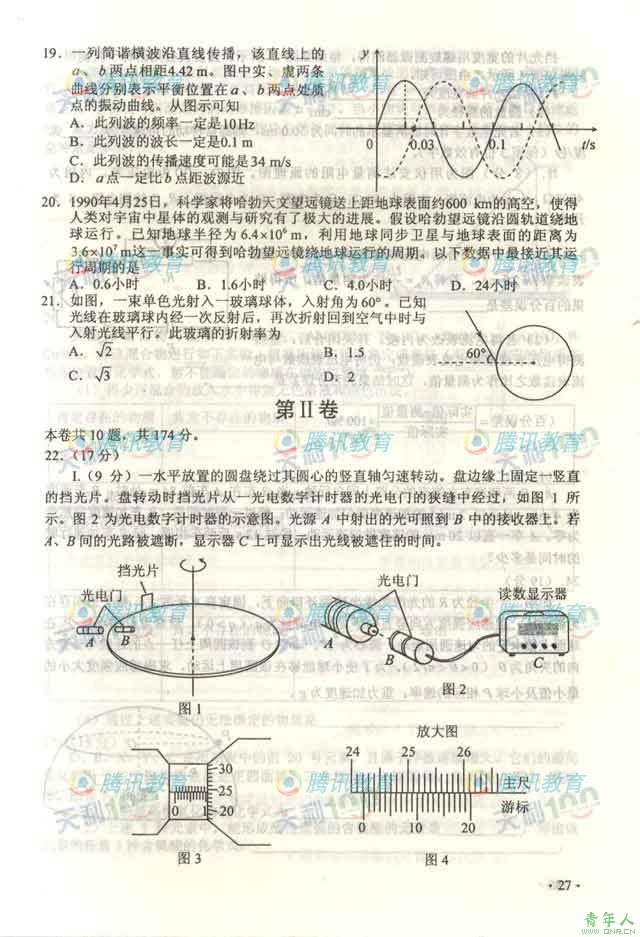 19. 一列简谐横波沿直线传播，该直线上的
a、b两点相距4.42 m。图中实、虚两条
曲线分别表示平衡位置在a、b两点处质
点的振动曲线。从图示可知
A．此列波的频率一定是10Hz
B．此列波的波长一定是0.1 m
C．此列波的传播速度可能是34 m/s
D．a点一定比b点距波源近
y
0
0.03
0.1
t/s
20. 1990年4月25日，科学家将哈勃天文望远镜送上距地球表面约600 km的高空，使得
人类对宇宙中星体的观测与研究有了极大的进展。假设哈勃望远镜沿圆轨道绕地
球运行。已知地球半径为6.4×10⁶ m，利用地球同步卫星与地球表面的距离为
3.6×10⁷ m这一事实可得到哈勃望远镜绕地球运行的周期。以下数据中最接近其运
行周期的是
A．0.6小时 B．1.6小时 C．4.0小时 D．24小时
21. 如图，一束单色光射入一玻璃球体，入射角为60°。已知
光线在玻璃球内经一次反射后，再次折射回到空气中时与
入射光线平行。此玻璃的折射率为
A．√2 B．1.5
C．√3 D．2
60°
第Ⅱ卷
本卷共10题，共174分。
22. (17分)
I.(9 分)一水平放置的圆盘绕过其圆心的竖直轴匀速转动。盘边缘上固定一竖直
的挡光片。盘转动时挡光片从一光电数字计时器的光电门的狭缝中经过，如图 1 所
示。图 2 为光电数字计时器的示意图。光源 A 中射出的光可照到 B 中的接收器上。若
A、B 间的光路被遮断，显示器 C 上可显示出光线被遮住的时间。
挡光片
光电门
A
B
图 1
光电门
读数显示器
A
B
C
图 2
30
25
20
0 1
图 3
放大图
24 25 26
主尺
游标
0 10 20
图 4
腾讯教育
天利100
· 27 ·
青年人
www.QNR.CN